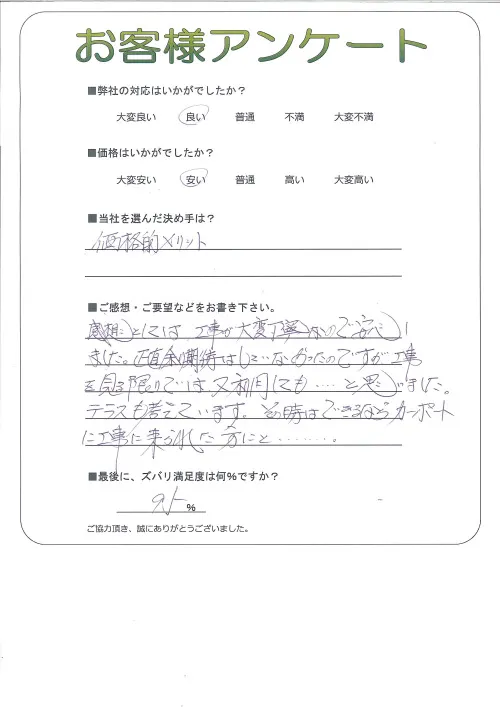 お客様アンケート
■弊社の対応はいかがでしたか？
大変良い 良い 普通 不満 大変不満
■価格はいかがでしたか？
大変安い 安い 普通 高い 大変高い
■当社を選んだ決め手は？
価格的メリット
■ご感想・ご要望などをお書き下さい。
感想としては 工事が大変丁寧なので安心し
ました。正直余り期待はしていなかったのですが工事
を見る限りでは又利用しても‥‥と思いました。
テラスも考えています。その時はできるならカーポート
に工事に来られた方にと‥‥‥。
■最後に、ズバリ満足度は何％ですか？
95 %
ご協力頂き、誠にありがとうございました。